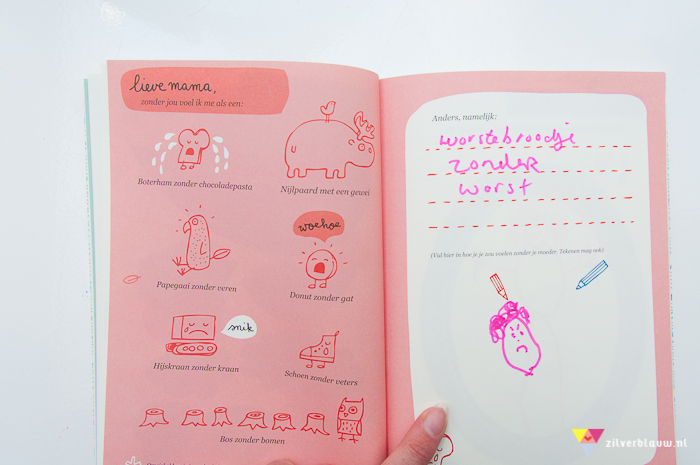 lieve mama,
zonder jou voel ik me als een:
Boterham zonder chocoladepasta
Nijlpaard met een gewei
woehoe
Papegaai zonder veren
Donut zonder gat
snik
Hijskraan zonder kraan
Schoen zonder veters
Bos zonder bomen
Anders, namelijk:
worstebroodje
zonder
worst
(Vul hier in hoe je je zou voelen zonder je moeder. Tekenen mag ook)
zilverblauw.nl